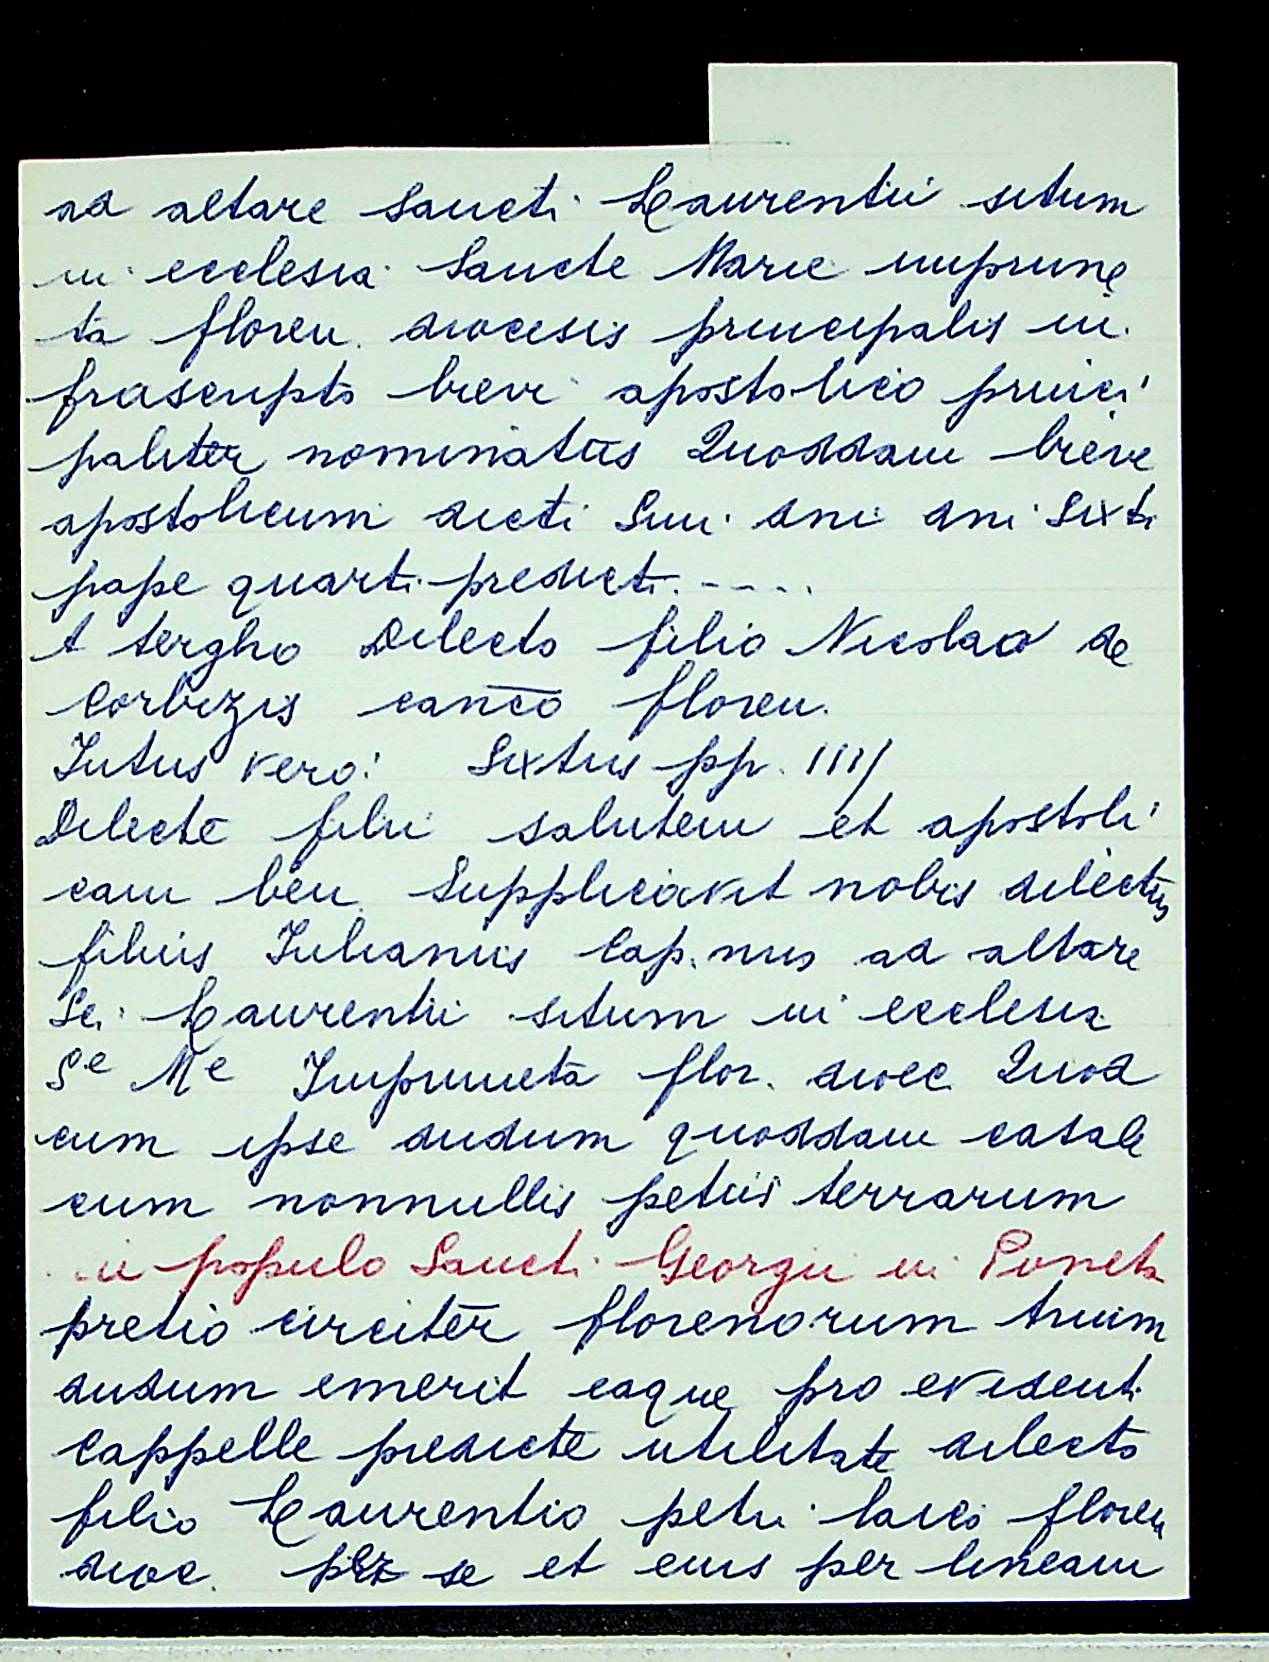 ad altare Sancti Laurentii situm
in ecclesia Sancte Marie imprune
ta floren. diocesis principalis in
frascripto brevi apostolico princi
paliter nominatus Quoddam breve
apostolicum dicti Smi. dni dni Sixti
pape quarti predicti. - - - .
A tergho Dilecto filio Nicolao de
Corbizis canco floren.
Intus vero: Sixtus pp. IIII
Dilecte fili salutem et apostoli
cam ben. Supplicavit nobis dilectus
filius Iulianus Cap.nus ad altare
Sci. Laurentii situm in ecclesia
Se Me Impruneta flor. dioec. Quod
cum ipse dudum quoddam casale
cum nonnullis petiis terrarum
in populo Sancti Georgii in
pretio circiter florenorum trium
dudum emerit eaque pro evidenti
Cappelle predicte utilitate dilecto
filio Laurentio petri laico floren
dioc. per se et eius per lineam